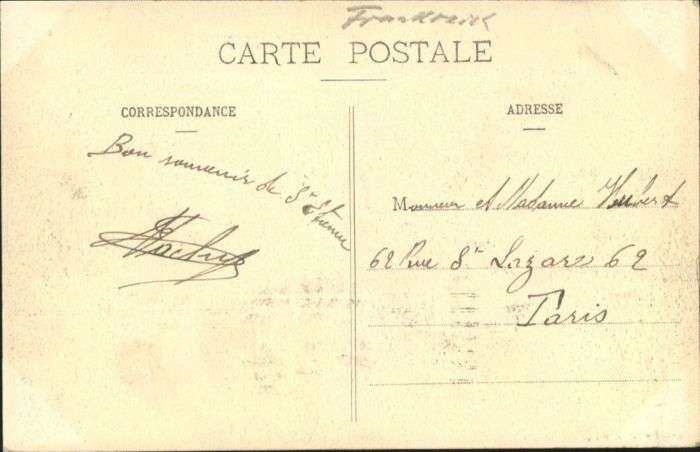 Frankreich
CARTE POSTALE
CORRESPONDANCE
Bon souvenir de St Etienne
ADRESSE
Monsieur et Madame Hubert
62 Rue St Lazare 62
Paris